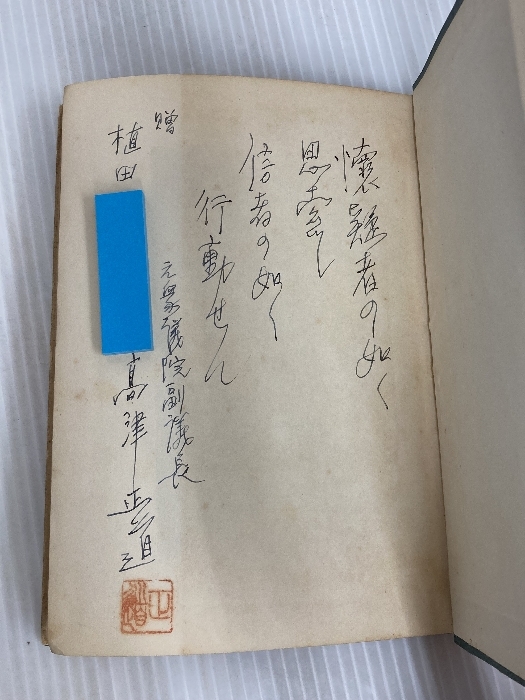 懐疑者の如く
思索し
信者の如く
行動せん
贈
植田
元衆議院副議長
高津正道
正道